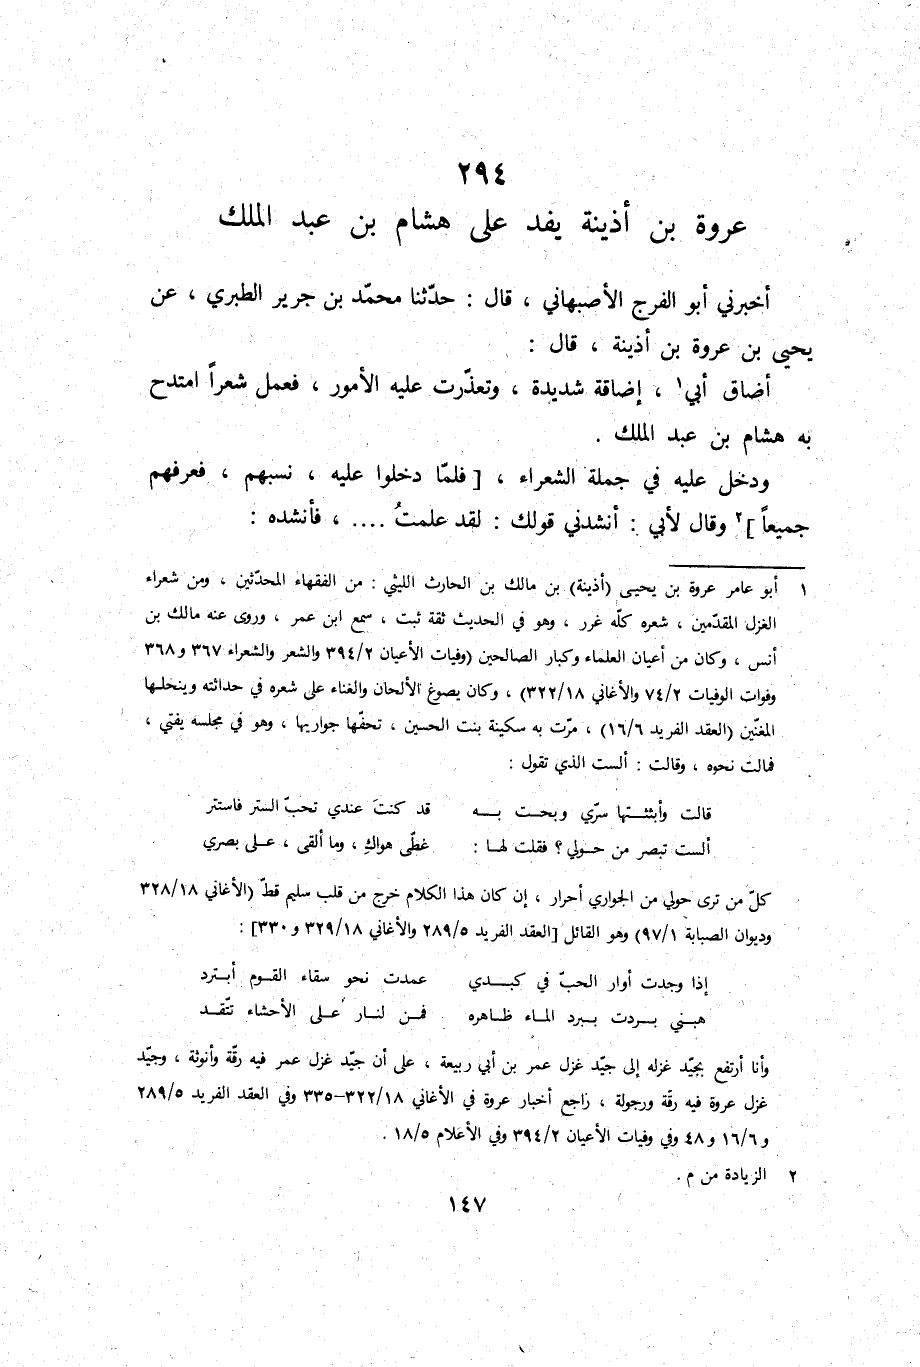 ٢٩٤
عروة بن أذينة يفد على هشام بن عبد الملك
أخبرني أبو الفرج الأصبهاني ، قال : حدّثنا محمّد بن جرير الطبري ، عن
يحيى بن عروة بن أذينة ، قال :
أضاق أبي١ ، إضاقة شديدة ، وتعذّرت عليه الأمور ، فعمل شعراً امتدح
به هشام بن عبد الملك .
ودخل عليه في جملة الشعراء ، [ فلمّا دخلوا عليه ، نسبهم ، فعرفهم
جميعاً ]٢ وقال لأبي : أنشدني قولك : لقد علمتُ .... ، فأنشده :
١ أبو عامر عروة بن يحيى (أذينة) بن مالك بن الحارث الليثي : من الفقهاء المحدّثين ، ومن شعراء
الغزل المقدّمين ، شعره كلّه غرر ، وهو في الحديث ثقة ثبت ، سمع ابن عمر ، وروى عنه مالك بن
أنس ، وكان من أعيان العلماء وكبار الصالحين (وفيات الأعيان ٣٩٤/٢ والشعر والشعراء ٣٦٧ و٣٦٨
وفوات الوفيات ٧٤/٢ والأغاني ٣٢٢/١٨) ، وكان يصوغ الألحان والغناء على شعره في حداثته وينحلها
المغنّين (العقد الفريد ١٦/٦) ، مرّت به سكينة بنت الحسين ، تحفّها جواريها ، وهو في مجلسه يفتي ،
فمالت نحوه ، وقالت : ألست الذي تقول :
قالت وأبثثتها سرّي وبحت به قد كنتَ عندي تحبّ الستر فاستتر
ألست تبصر من حولي ؟ فقلت لها : غطّى هواكِ ، وما ألقى ، على بصري
كلّ من ترى حولي من الجواري أحرار ، إن كان هذا الكلام خرج من قلب سليم قطّ (الأغاني ٣٢٨/١٨
وديوان الصبابة ٩٧/١) وهو القائل [العقد الفريد ٢٨٩/٥ والأغاني ٣٢٩/١٨ و٣٣٠] :
إذا وجدت أوار الحبّ في كبدي عمدت نحو سقاء القوم أبترد
هبني بردت ببرد الماء ظاهره فمن لنار على الأحشاء تتّقد
وأنا أرتفع بجيّد غزله إلى جيّد غزل عمر بن أبي ربيعة ، على أن جيّد غزل عمر فيه رقّة وأنوثة ، وجيّد
غزل عروة فيه رقّة ورجولة ، راجع أخبار عروة في الأغاني ٣٢٢/١٨-٣٣٥ وفي العقد الفريد ٢٨٩/٥
و١٦/٦ و٤٨ وفي وفيات الأعيان ٣٩٤/٢ وفي الأعلام ١٨/٥ .
٢ الزيادة من م .
١٤٧